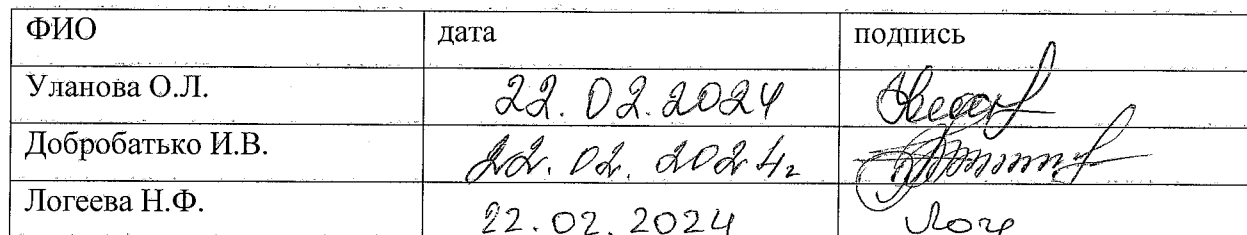 ФИО дата подпись
Уланова О.Л. 22.02.2024
Добробатько И.В. 22.02.2024г
Логеева Н.Ф. 22.02.2024 Логе